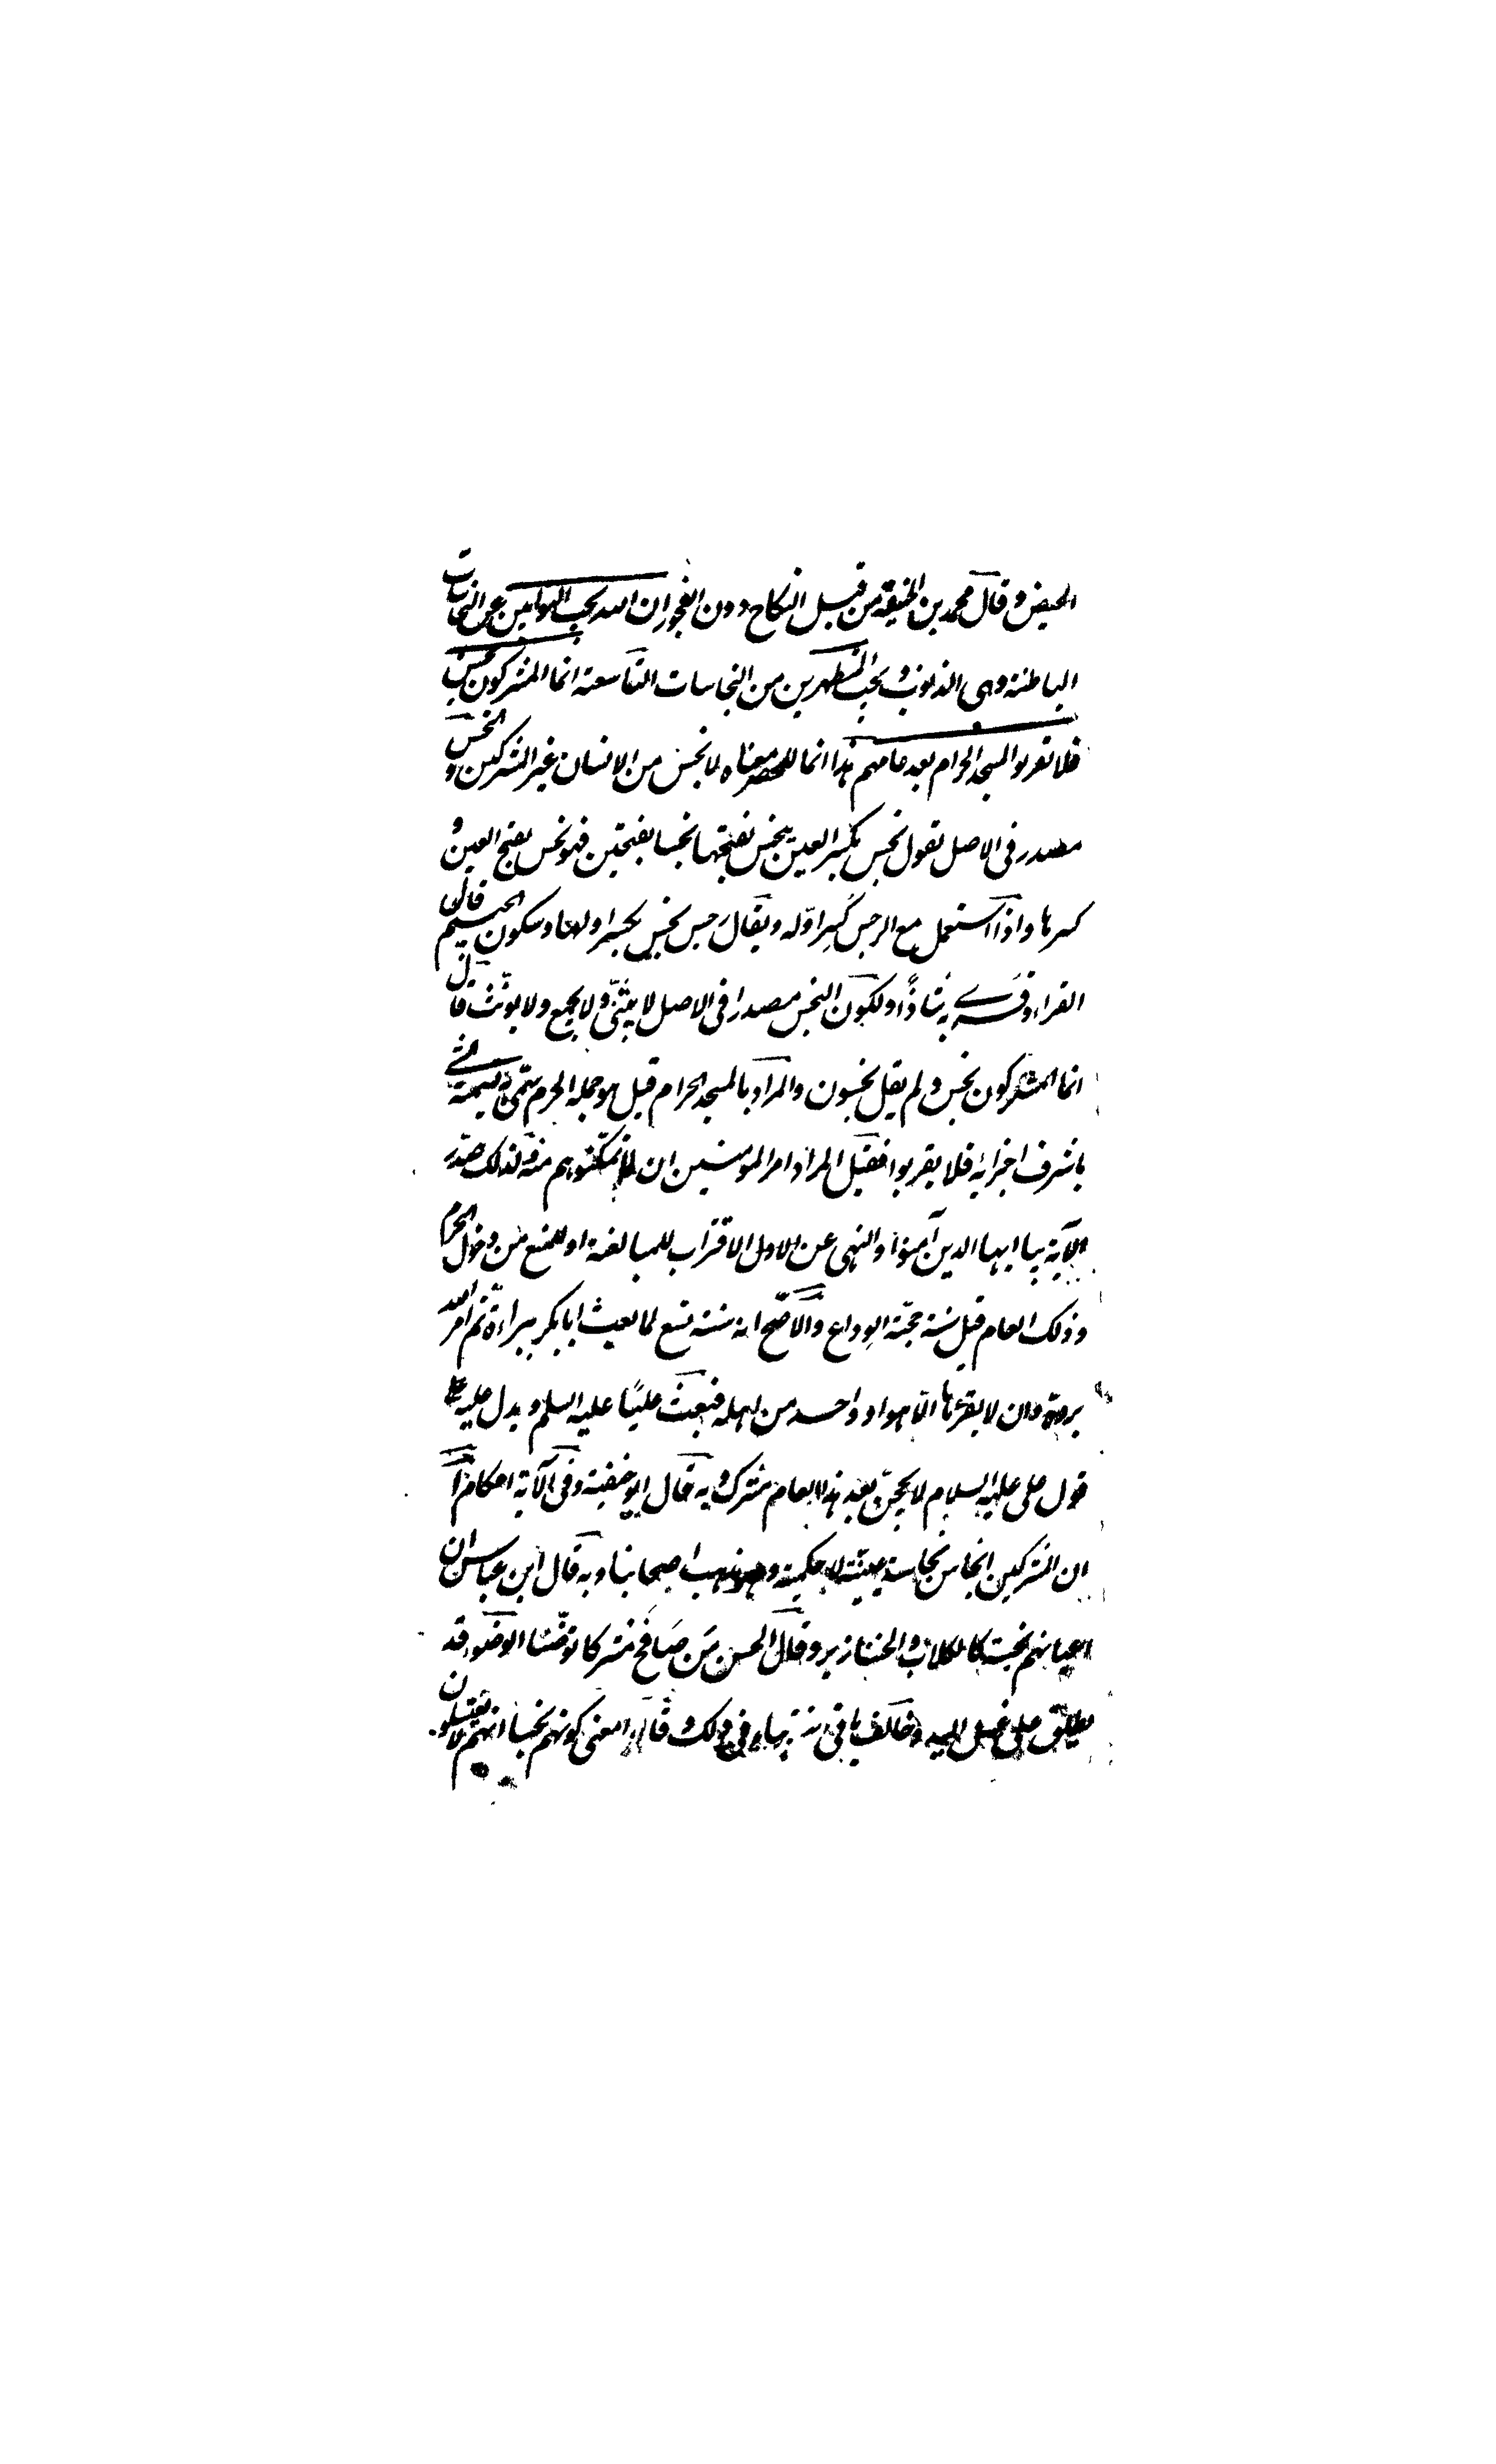 الحيض وقال محمد بن الحنفية من قبل النكاح دون الفجور ان الله يحب التوابين عن النجاسات
الباطنة وهى الذنوب ويحب المتطهرين من النجاسات التاسعة انما المشركون نجس
فلا تقربوا المسجد الحرام بعد عامهم هذا انما للحصر معناه لا نجس من الانسان غير المشركين والنجس
مصدر فى الاصل تقول نجس بكسر العين ينجس بفتحها نجسا بفتحتين فهو نجس بفتح العين و
كسرها واذا استعمل مع الرجس كسر اوّله ويقال رجس نجس بكسر اولهما وسكون الجيم قاله
الفراء وقرئ به شاذًا ولكون النجس مصدرا فى الاصل لا يثنّى ولا يجمع ولا يونّث قال
انما المشركون نجس ولم يقل نجسون والمراد بالمسجد الحرام قيل هو جملة الحرم سمّى تسمية الشئ
باشرف اجزايه فلا يقربوا فقيل المراد امر المومنين ان لا يمكّنوهم منه ولذلك صدّر
الآية بيا ايها الذين آمنوا والنهى عن الاقتراب للمبالغة او للمنع من دخول الحرم
وذلك العام قيل سنة حجّة الوداع والاصّح انه سنة تسع لما بعث ابا بكر ببراءة ثم امر الله
بردّه وان لا يقرئها الّا هو او واحد من اهله فبعث عليًا عليه السلم ويدل عليه
قول على عليه السلام لا يحجّن بعد هذا العام مشرك وبه قال ابو حنيفة وفى الآية احكام آ
ان المشركين انجاس نجاسة عينيّة لا حكمية وهو مذهب اصحابنا وبه قال ابن عباس ان
اعيانهم نجسة كالكلاب والخنازير وقال الحسن مَن صَافَح مشركا توضّئا الوضوء قد
يطلق على غسل اليد وخالف باقى الفقهاء فى ذلك وقالوا معنى كونهم نجسا انهم لا يغتسلون